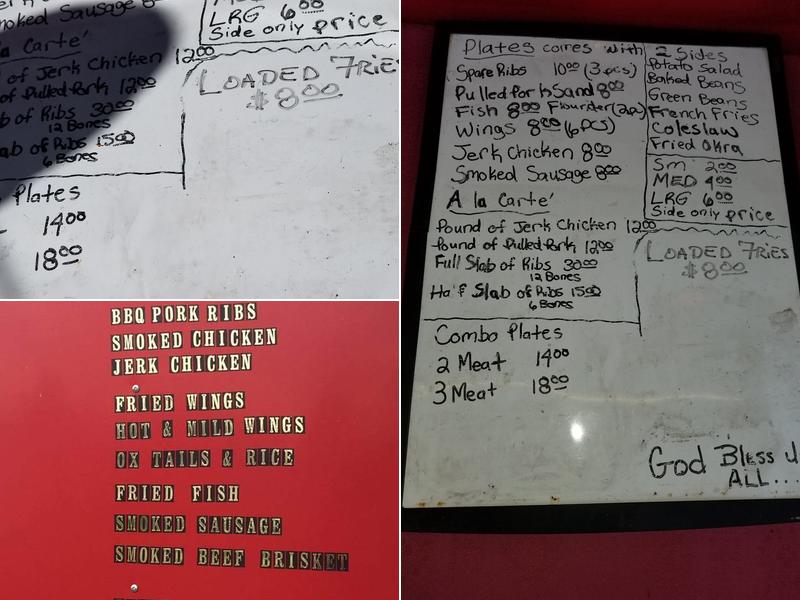 Smoked Sausage 8
LRG 6.00
Side only price
la Carté
of Jerk Chicken 12.00
of Pulled Pork 12.00
b of Ribs 30.00
12 Bones
lab of Ribs 15.00
6 Bones
LOADED FRIE
$8.00
Plates
14.00
18.00
BBQ PORK RIBS
SMOKED CHICKEN
JERK CHICKEN
FRIED WINGS
HOT & MILD WINGS
OX TAILS & RICE
FRIED FISH
SMOKED SAUSAGE
SMOKED BEEF BRISKET
Plates comes with
Spare Ribs 10.00 (3 pcs)
Pulled Pork Sand 8.00
Fish 8.00 Flounder (2pc)
Wings 8.00 (6 pcs)
Jerk Chicken 8.00
Smoked Sausage 8.00
2 Sides
Potato Salad
Baked Beans
Green Beans
French Fries
Coleslaw
Fried Okra
Sm 2.00
MED 4.00
LRG 6.00
Side only price
A la Carté
Pound of Jerk Chicken 12.00
Pound of Pulled Pork 12.00
Full Slab of Ribs 30.00
12 Bones
Half Slab of Ribs 15.00
6 Bones
LOADED FRIES
$8.00
Combo Plates
2 Meat 14.00
3 Meat 18.00
God Bless U
ALL...